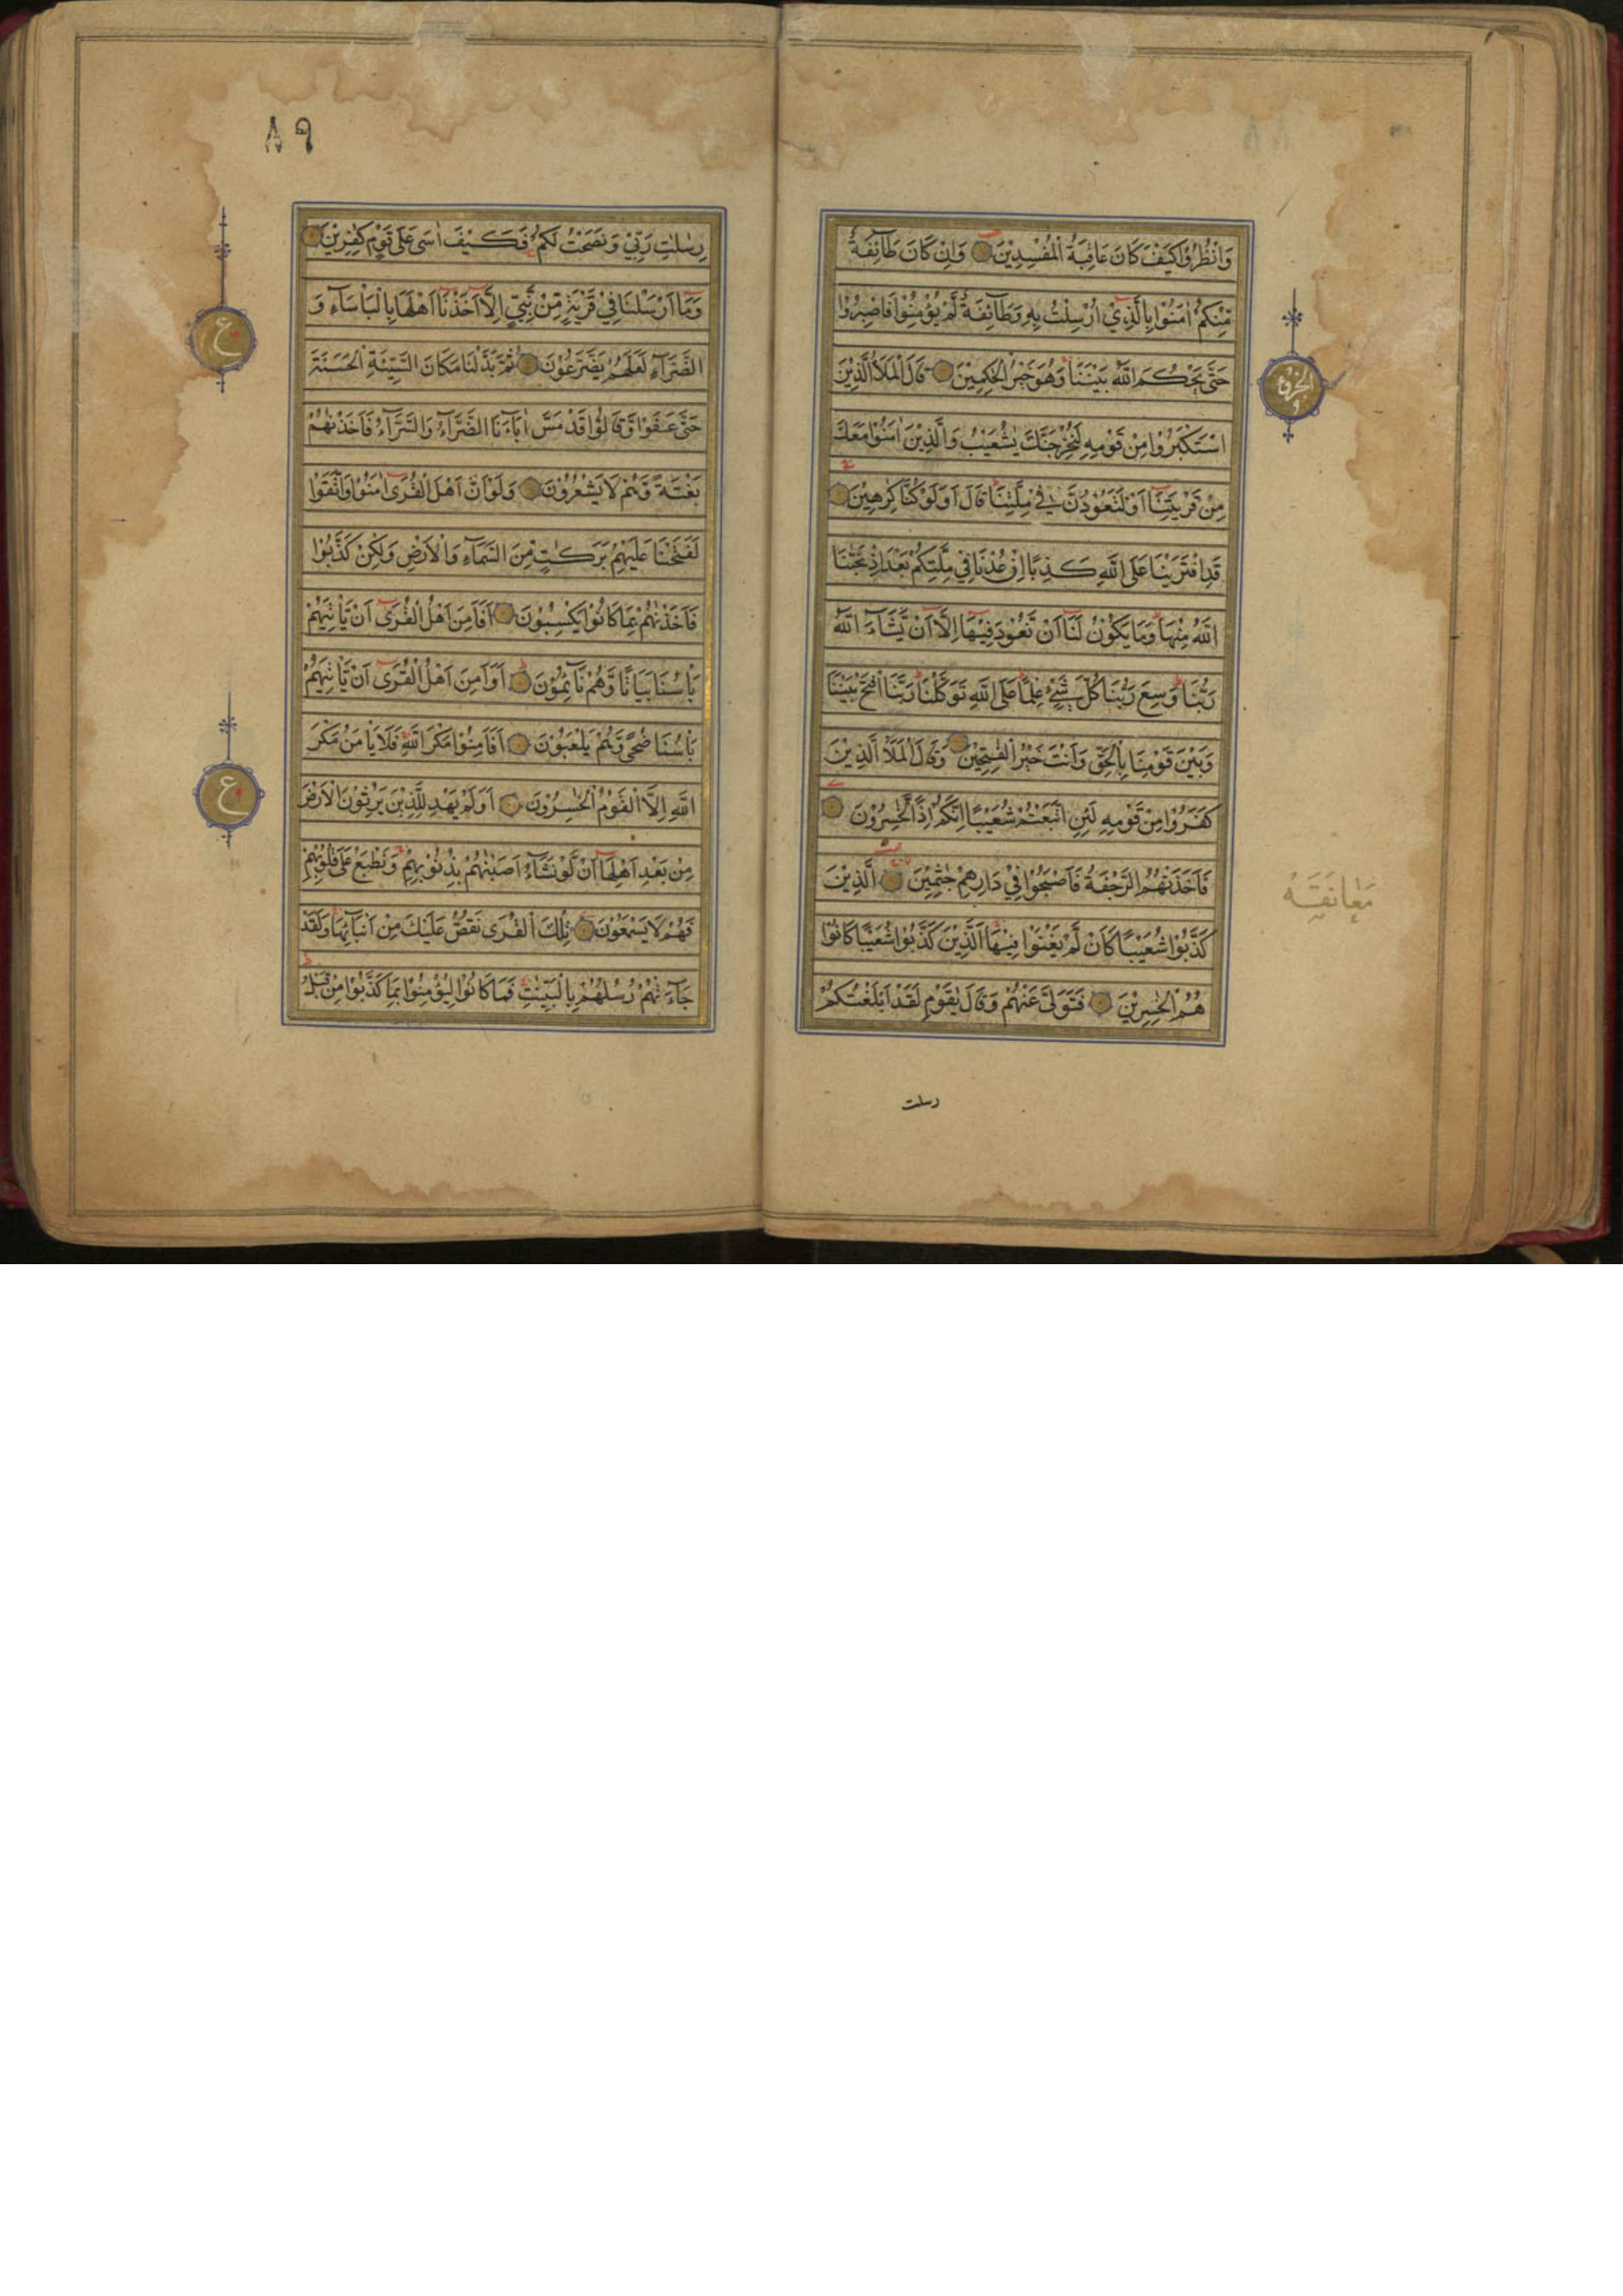 وَانْظُرُوْا كَيْفَ كَانَ عَاقِبَةُ الْمُفْسِدِيْنَ وَاِنْ كَانَ طَآئِفَةٌ
مِّنْكُمْ اٰمَنُوْا بِالَّذِيْ اُرْسِلْتُ بِهٖ وَطَآئِفَةٌ لَّمْ يُؤْمِنُوْا فَاصْبِرُوْا
حَتّٰى يَحْكُمَ اللّٰهُ بَيْنَنَا وَهُوَ خَيْرُ الْحٰكِمِيْنَ قَالَ الْمَلَاُ الَّذِيْنَ
اسْتَكْبَرُوْا مِنْ قَوْمِهٖ لَنُخْرِجَنَّكَ يٰشُعَيْبُ وَالَّذِيْنَ اٰمَنُوْا مَعَكَ
مِنْ قَرْيَتِنَآ اَوْ لَتَعُوْدُنَّ فِيْ مِلَّتِنَا قَالَ اَوَلَوْ كُنَّا كٰرِهِيْنَ
قَدِ افْتَرَيْنَا عَلَى اللّٰهِ كَذِبًا اِنْ عُدْنَا فِيْ مِلَّتِكُمْ بَعْدَ اِذْ نَجّٰىنَا
اللّٰهُ مِنْهَا وَمَا يَكُوْنُ لَنَآ اَنْ نَّعُوْدَ فِيْهَآ اِلَّآ اَنْ يَّشَآءَ اللّٰهُ
رَبُّنَا وَسِعَ رَبُّنَا كُلَّ شَيْءٍ عِلْمًا عَلَى اللّٰهِ تَوَكَّلْنَا رَبَّنَا افْتَحْ بَيْنَنَا
وَبَيْنَ قَوْمِنَا بِالْحَقِّ وَاَنْتَ خَيْرُ الْفٰتِحِيْنَ وَقَالَ الْمَلَاُ الَّذِيْنَ
كَفَرُوْا مِنْ قَوْمِهٖ لَئِنِ اتَّبَعْتُمْ شُعَيْبًا اِنَّكُمْ اِذًا لَّخٰسِرُوْنَ
فَاَخَذَتْهُمُ الرَّجْفَةُ فَاَصْبَحُوْا فِيْ دَارِهِمْ جٰثِمِيْنَ الَّذِيْنَ
كَذَّبُوْا شُعَيْبًا كَاَنْ لَّمْ يَغْنَوْا فِيْهَا اَلَّذِيْنَ كَذَّبُوْا شُعَيْبًا كَانُوْا
هُمُ الْخٰسِرِيْنَ فَتَوَلّٰى عَنْهُمْ وَقَالَ يٰقَوْمِ لَقَدْ اَبْلَغْتُكُمْ
رسلت
معانقه
٨٩
رِسٰلٰتِ رَبِّيْ وَنَصَحْتُ لَكُمْ فَكَيْفَ اٰسٰى عَلٰى قَوْمٍ كٰفِرِيْنَ
وَمَآ اَرْسَلْنَا فِيْ قَرْيَةٍ مِّنْ نَّبِيٍّ اِلَّآ اَخَذْنَآ اَهْلَهَا بِالْبَاْسَآءِ وَ
الضَّرَّآءِ لَعَلَّهُمْ يَضَّرَّعُوْنَ ثُمَّ بَدَّلْنَا مَكَانَ السَّيِّئَةِ الْحَسَنَةَ
حَتّٰى عَفَوْا وَّقَالُوْا قَدْ مَسَّ اٰبَآءَنَا الضَّرَّآءُ وَالسَّرَّآءُ فَاَخَذْنٰهُمْ
بَغْتَةً وَّهُمْ لَا يَشْعُرُوْنَ وَلَوْ اَنَّ اَهْلَ الْقُرٰٓى اٰمَنُوْا وَاتَّقَوْا
لَفَتَحْنَا عَلَيْهِمْ بَرَكٰتٍ مِّنَ السَّمَآءِ وَالْاَرْضِ وَلٰكِنْ كَذَّبُوْا
فَاَخَذْنٰهُمْ بِمَا كَانُوْا يَكْسِبُوْنَ اَفَاَمِنَ اَهْلُ الْقُرٰٓى اَنْ يَّاْتِيَهُمْ
بَاْسُنَا بَيَاتًا وَّهُمْ نَآئِمُوْنَ اَوَاَمِنَ اَهْلُ الْقُرٰٓى اَنْ يَّاْتِيَهُمْ
بَاْسُنَا ضُحًى وَّهُمْ يَلْعَبُوْنَ اَفَاَمِنُوْا مَكْرَ اللّٰهِ فَلَا يَاْمَنُ مَكْرَ
اللّٰهِ اِلَّا الْقَوْمُ الْخٰسِرُوْنَ اَوَلَمْ يَهْدِ لِلَّذِيْنَ يَرِثُوْنَ الْاَرْضَ
مِنْ بَعْدِ اَهْلِهَآ اَنْ لَّوْ نَشَآءُ اَصَبْنٰهُمْ بِذُنُوْبِهِمْ وَنَطْبَعُ عَلٰى قُلُوْبِهِمْ
فَهُمْ لَا يَسْمَعُوْنَ تِلْكَ الْقُرٰى نَقُصُّ عَلَيْكَ مِنْ اَنْبَآئِهَا وَلَقَدْ
جَآءَتْهُمْ رُسُلُهُمْ بِالْبَيِّنٰتِ فَمَا كَانُوْا لِيُؤْمِنُوْا بِمَا كَذَّبُوْا مِنْ قَبْلُ
ع
ع